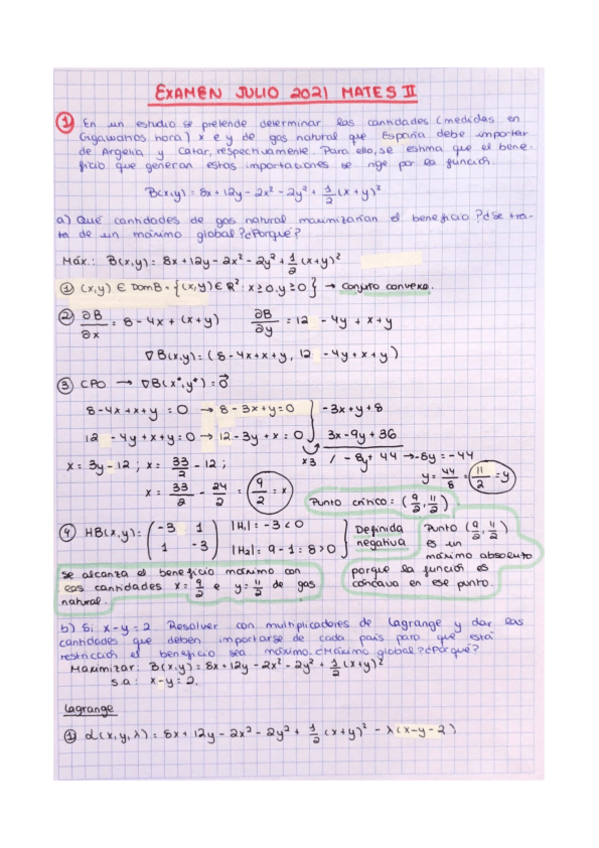 EXAMEN JULIO 2021 MATES II
① En un estudio se pretende determinar las cantidades (medidas en
Gigawatios hora) x e y de gas natural que España debe importar
de Argelia y Catar, respectivamente. Para ello, se estima que el bene-
ficio que generan estas importaciones se rige por la función.
B(x,y) = 8x + 12y - 2x² - 2y² + 1/2 (x+y)²
a) Qué cantidades de gas natural maximizarían el beneficio? ¿Se tra-
ta de un máximo global? ¿Porqué?
Máx.: B(x,y) = 8x + 12y - 2x² - 2y² + 1/2 (x+y)²
① (x,y) ∈ DomB = {(x,y) ∈ R² : x ≥ 0, y ≥ 0} → Conjunto convexo.
② ∂B/∂x = 8 - 4x + (x+y) ∂B/∂y = 12 - 4y + x + y
∇B(x,y) = (8 - 4x + x + y, 12 - 4y + x + y)
③ CPO → ∇B(x*,y*) = 0⃗
8 - 4x + x + y = 0 → 8 - 3x + y = 0 } -3x + y + 8
12 - 4y + x + y = 0 → 12 - 3y + x = 0 } 3x - 9y + 36
x3 / - 8y + 44 → -8y = -44
x = 3y - 12 ; x = 33/2 - 12 ; y = 44/8 = 11/2 = y
x = 33/2 - 24/2 = 9/2 = x
Punto crítico: (9/2, 11/2)
④ HB(x,y) = (-3 1 / 1 -3) |H₁| = -3 < 0 |H₂| = 9 - 1 = 8 > 0 } Definida negativa
Punto (9/2, 11/2)
es un
máximo absoluto
porque la función es
cóncava en ese punto.
Se alcanza el beneficio máximo con
las cantidades x = 9/2 e y = 11/2 de gas
natural.
b) Si x - y = 2. Resolver con multiplicadores de Lagrange y dar las
cantidades que deben importarse de cada país para que esta
restricción el beneficio sea máximo. ¿Máximo global? ¿Porqué?
Maximizar: B(x,y) = 8x + 12y - 2x² - 2y² + 1/2 (x+y)²
s.a: x - y = 2.
Lagrange
① L(x,y,λ) = 8x + 12y - 2x² - 2y² + 1/2 (x+y)² - λ(x-y-2)